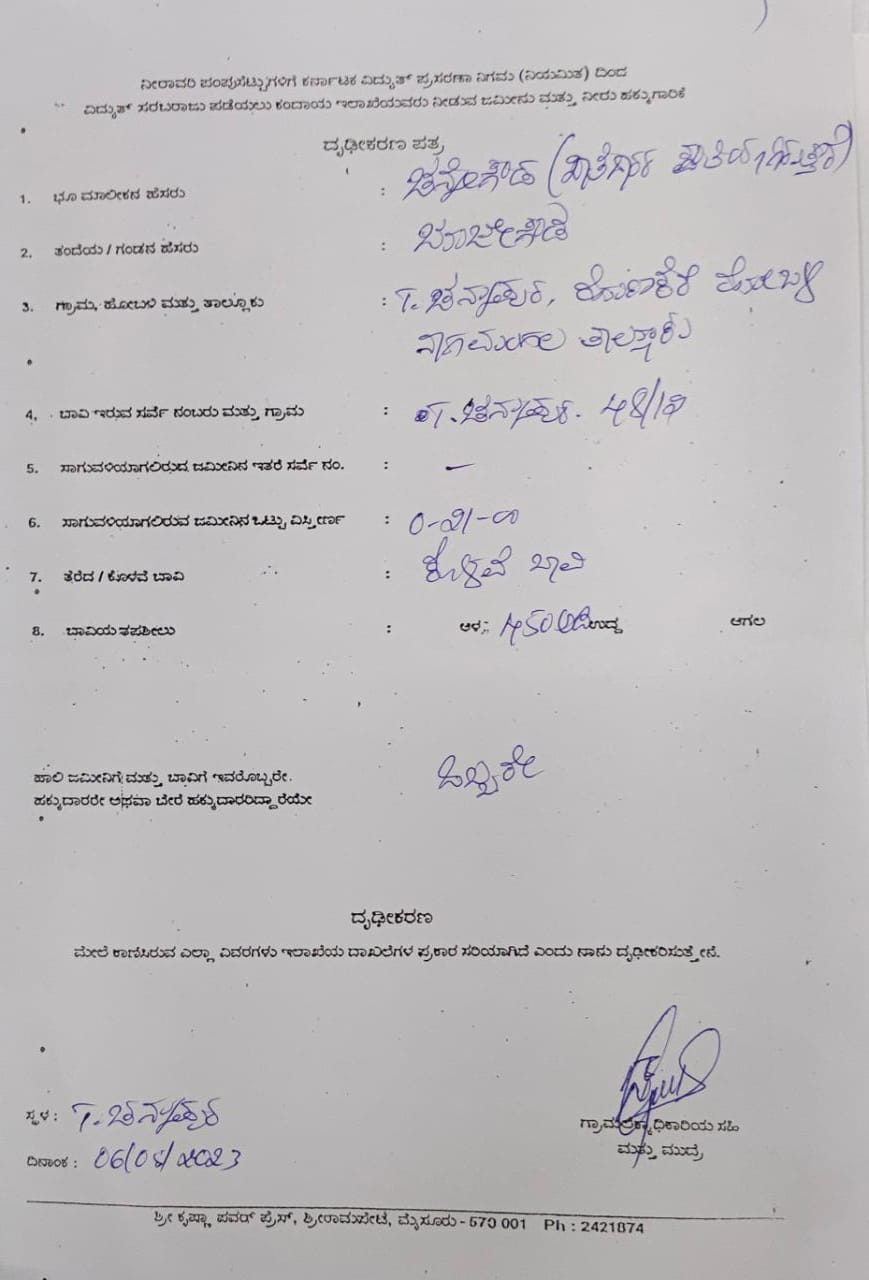 ನೀರಾವರಿ ಪಂಪ್ಸಟ್ಟುಗಳಿಗೆ ಕರ್ನಾಟಕ ವಿದ್ಯುತ್ ಪ್ರಸರಣಾ ನಿಗಮ (ನಿಯಮಿತ) ದಿಂದ
ವಿದ್ಯುತ್ ಸರಬರಾಜು ಪಡೆಯಲು ಕಂದಾಯ ಇಲಾಖೆಯವರು ನೀಡುವ ಜಮೀನು ಮತ್ತು ನೀರು ಹಕ್ಕುಗಾರಿಕೆ
ದೃಢೀಕರಣ ಪತ್ರ
1. ಭೂ ಮಾಲೀಕನ ಹೆಸರು :
2. ತಂದೆಯ / ಗಂಡನ ಹೆಸರು :
3. ಗ್ರಾಮ, ಹೋಬಳಿ ಮತ್ತು ತಾಲ್ಲೂಕು : T. ಚನ್ನಾಪುರ, ಹೋಬಳಿ
ನಾಗಮಂಗಲ ತಾಲ್ಲೂಕು
4. ಬಾವಿ ಇರುವ ಸರ್ವೆ ನಂಬರು ಮತ್ತು ಗ್ರಾಮ : T. ಚನ್ನಾಪುರ.
5. ಸಾಗುವಳಿಯಾಗಲಿರುವ ಜಮೀನಿನ ಇತರೆ ಸರ್ವೆ ನಂ. : —
6. ಸಾಗುವಳಿಯಾಗಲಿರುವ ಜಮೀನಿನ ಒಟ್ಟು ವಿಸ್ತೀರ್ಣ :
7. ತೆರೆದ / ಕೊಳವೆ ಬಾವಿ : ಕೊಳವೆ ಬಾವಿ
8. ಬಾವಿಯ ತಪಶೀಲು : ಆಳ: 450 ಅಡಿ ಉದ್ದ ಅಗಲ
ಹಾಲಿ ಜಮೀನಿಗೆ ಮತ್ತು ಬಾವಿಗೆ ಇವರೊಬ್ಬರೇ. ಒಬ್ಬರೇ
ಹಕ್ಕುದಾರರೇ ಅಥವಾ ಬೇರೆ ಹಕ್ಕುದಾರರಿದ್ದಾರೆಯೇ
ದೃಢೀಕರಣ
ಮೇಲೆ ಕಾಣಿಸಿರುವ ಎಲ್ಲಾ ವಿವರಗಳು ಇಲಾಖೆಯ ದಾಖಲೆಗಳ ಪ್ರಕಾರ ಸರಿಯಾಗಿದೆ ಎಂದು ನಾನು ದೃಢೀಕರಿಸುತ್ತೇನೆ.
ಸ್ಥಳ : T. ಚನ್ನಾಪುರ
ಗ್ರಾಮಲೆಕ್ಕಾಧಿಕಾರಿಯ ಸಹಿ
ಮತ್ತು ಮುದ್ರೆ
ದಿನಾಂಕ :
ಶ್ರೀ ಕೃಷ್ಣಾ ಪವರ್ ಪ್ರೆಸ್, ಶ್ರೀರಾಮಪೇಟೆ, ಮೈಸೂರು - 570 001 Ph : 2421874